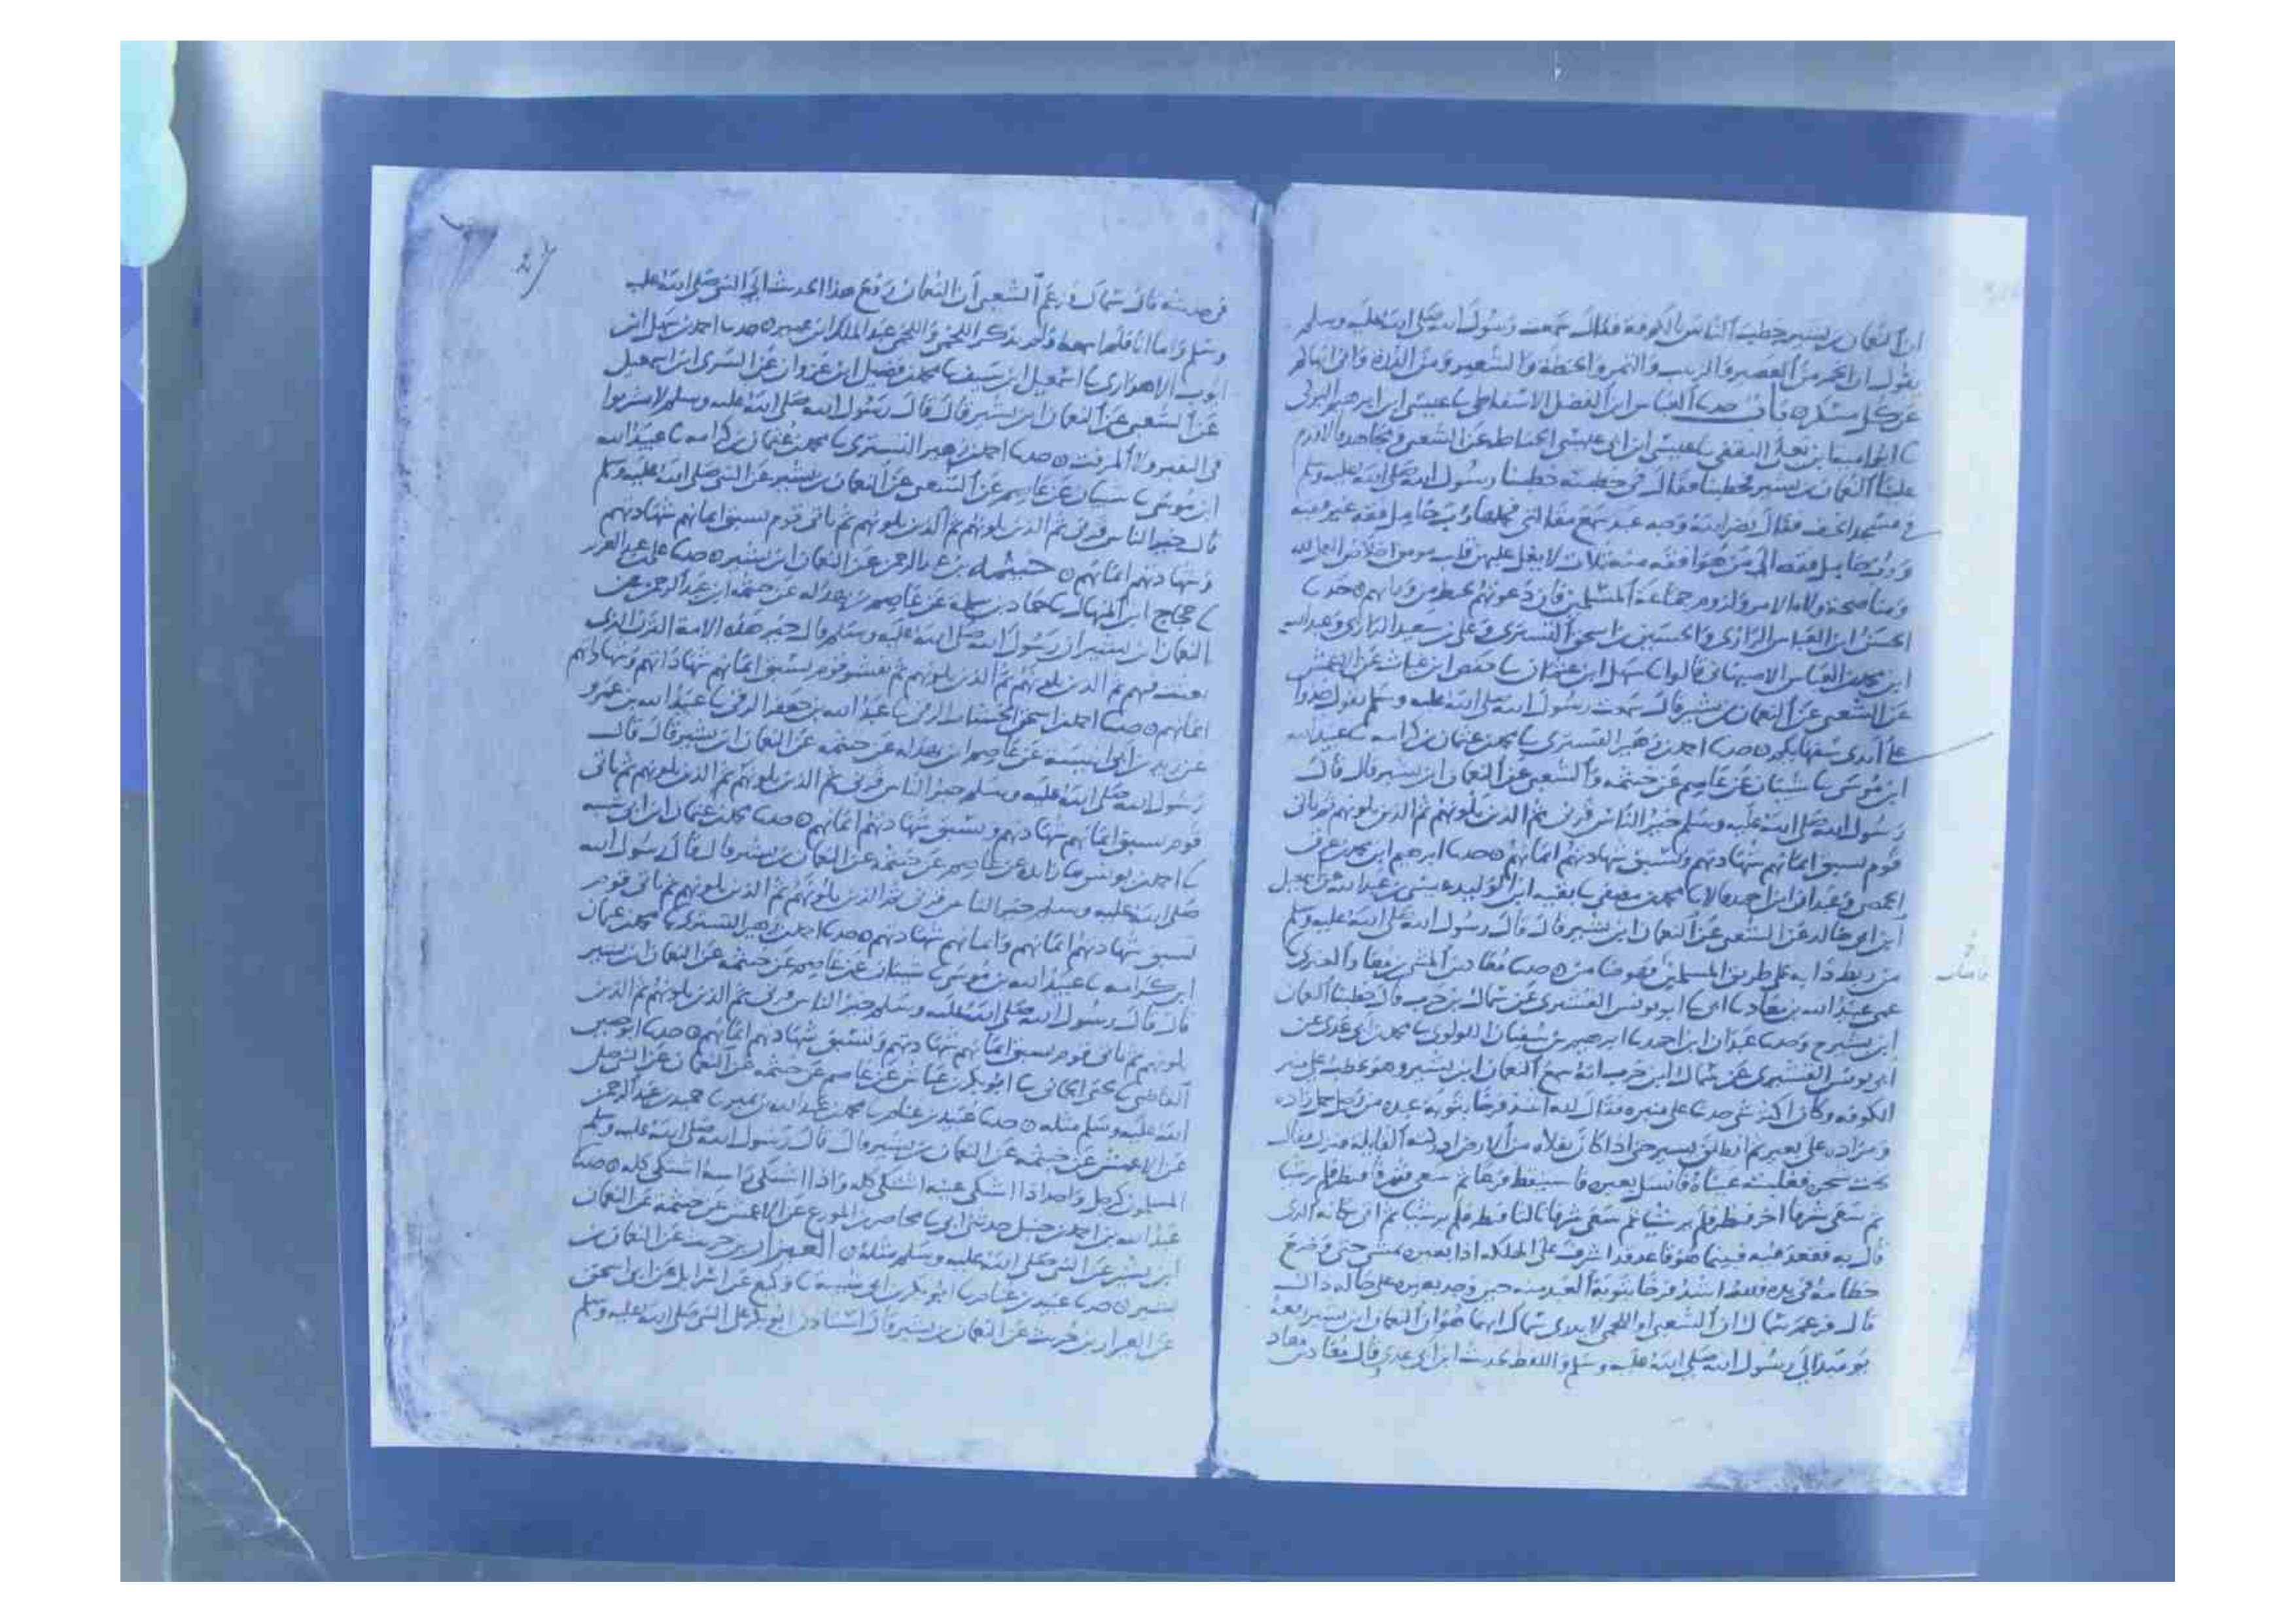 ان النعمان بن بشير خطب الناس بالكوفة فقال سمعت رسول الله صلى الله عليه وسلم
يقول ان الخمر من العصير والزبيب والتمر والحنطة والشعير ومن الذرة واني انهاكم
عن كل مسكر حدثنا العباس ابن الفضل الاسفاطي عيسى ابن ابرهيم البركي
عيسى ابن ابي عيسى الحناط عن الشعبي
علينا النعمان بن بشير فخطبنا فقال في خطبته خطبنا رسول الله صلى الله عليه وسلم
في مسجد الخيف فقال نضر الله وجه عبد سمع مقالتي فحملها فرب حامل فقه غير فقيه
ورب حامل فقه الى من هو افقه منه ثلاث لا يغل عليهن قلب مومن اخلاص العمل لله
ومناصحة ولاه الامر ولزوم جماعة المسلمين فان دعوتهم تحيط من ورايهم حدثنا
الحسن ابن العباس الرازي والحسين بن اسحق التستري وعلي بن سعيد الرازي وعبد الله
ابن محمد ابن العباس الاصبهاني قالوا سهل ابن عثمان حفص ابن غياث عن الاعمش
عن الشعبي عن النعمان بن بشير قال سمعت رسول الله صلى الله عليه وسلم يقول خذوا
على ايدي سفهايكم حدثنا احمد بن زهير التستري محمد بن عثمان بن كرامه عبيد الله
ابن موسى شيبان عن عاصم عن خيثمه والشعبي عن النعمان ابن بشير قال قال
رسول الله صلى الله عليه وسلم خير الناس قرني ثم الذين يلونهم ثم الذين يلونهم ثم ياتي
قوم تسبق ايمانهم شهادتهم وتسبق شهادتهم ايمانهم حدثنا ابرهيم ابن محمد بن عرق
الحمصي وعبدان ابن احمد قالا محمد بن مصفى بقيه ابن الوليد عيسى بن عبد الله عن اسمعيل
ابن ابي خالد عن الشعبي عن النعمان ابن بشير قال قال رسول الله صلى الله عليه وسلم
من ربط دابه على طريق المسلمين فهو ضامن حدثنا معاذ بن المثنى بن معاذ العنبري
عمي عبيد الله بن معاذ ابي ابو يونس القشيري عن سماك بن حرب قال خطبنا النعمان
ابن بشير ح وحدثنا عبدان ابن احمد ابرهيم بن محمد بن ابي عدي عن
ابي يونس القشيري عن سماك ابن حرب انه سمع النعمان ابن بشير وهو يخطب على منبر
الكوفه وكان اكثر شي حدثنا على منبره فقال لله اشد فرحا بتوبة عبده من رجل حمل زاده
ومزاده على بعير ثم انطلق يسير حتى اذا كان بفلاه من الارض ادركته القايله فنزل فقال
تحت شجره فغلبته عيناه فانسل بعيره فاستيقظ ثم سعى شرفا فنظر فلم ير شيا
ثم سعى شرفا اخر فنظر فلم ير شيا ثم سعى شرفا ثالثا فنظر فلم ير شيا ثم اتى مكانه الذي
قال به فقعد فيه فبينما هو قاعد قد اشرف على الهلكه اذا بعيره يمشي حتى وضع
خطامه في يده فلله اشد فرحا بتوبة العبد منه حين وجد بعيره على حاله ذلك
قال فزعم سماك ان الشعبي او اللخمي لا يدري سماك ايهما هو ان النعمان ابن بشير رفعه
يومئذ الى رسول الله صلى الله عليه وسلم واللفظ لحديث ابن ابي عدي قال معاذ بن معاذ
في حديثه قال سماك وزعم الشعبي ان النعمان رفع هذا الحديث الى النبي صلى الله عليه
وسلم واما انا فلم اسمعه ولم يذكر اللخمي واللخمي عبد الملك ابن عمير حدثنا احمد بن سهل ابن
ايوب الاهوازي اسمعيل ابن سيف محمد بن فضيل ابن غزوان عن السري ابن اسمعيل
عن الشعبي عن النعمان ابن بشير قال قال رسول الله صلى الله عليه وسلم لا تشربوا
في النقير ولا المزفت حدثنا احمد بن زهير التستري محمد بن عثمان بن كرامه عبيد الله
ابن موسى شيبان عن عاصم عن الشعبي عن النعمان بن بشير عن النبي صلى الله عليه وسلم
قال خير الناس قرني ثم الذين يلونهم ثم الذين يلونهم ثم ياتي قوم تسبق ايمانهم شهادتهم
وشهادتهم ايمانهم خيثمه بن عبد الرحمن عن النعمان ابن بشير حدثنا علي بن عبد العزيز
حجاج ابن المنهال حماد بن سلمه عن عاصم بن بهدله عن خيثمه ابن عبد الرحمن عن
النعمان ابن بشير ان رسول الله صلى الله عليه وسلم قال خير هذه الامة القرن الذي
بعثت فيهم ثم الذين يلونهم ثم الذين يلونهم ثم قوم تسبق ايمانهم شهاداتهم وشهاداتهم
ايمانهم حدثنا احمد بن اسحق الخشاب الرقي عبد الله بن جعفر الرقي عبيد الله بن عمرو
عن زيد بن ابي انيسة عن عاصم ابن بهدله عن خيثمه عن النعمان ابن بشير قال قال
رسول الله صلى الله عليه وسلم خير الناس قرني ثم الذين يلونهم ثم الذين يلونهم ثم ياتي
قوم تسبق ايمانهم شهادتهم وتسبق شهادتهم ايمانهم حدثنا محمد بن عثمان ابن ابي شيبه
احمد بن يونس زايده عن عاصم عن خيثمه عن النعمان بن بشير قال قال رسول الله
صلى الله عليه وسلم خير الناس قرني ثم الذين يلونهم ثم الذين يلونهم ثم ياتي قوم
تسبق شهادتهم ايمانهم وايمانهم شهادتهم حدثنا احمد بن زهير التستري محمد بن عثمان
ابن كرامه عبيد الله بن موسى شيبان عن عاصم عن خيثمه عن النعمان ابن بشير
قال قال رسول الله صلى الله عليه وسلم خير الناس قرني ثم الذين يلونهم ثم الذين
يلونهم ثم ياتي قوم تسبق ايمانهم شهادتهم وتسبق شهادتهم ايمانهم حدثنا ابو حصين
القاضي يحيى الحماني ابو بكر بن عياش عن عاصم عن خيثمه عن النعمان عن النبي صلى
الله عليه وسلم مثله حدثنا عبيد بن غنام محمد بن عبد الله بن نمير حميد بن عبد الرحمن
عن الاعمش عن خيثمه عن النعمان بن بشير قال قال رسول الله صلى الله عليه وسلم
المسلمون كرجل واحد اذا اشتكى عينه اشتكى كله واذا اشتكى راسه اشتكى كله حدثنا
عبد الله بن احمد بن حنبل حدثني ابي محاضر بن المورع عن الاعمش عن خيثمه عن النعمان
ابن بشير عن النبي صلى الله عليه وسلم مثله العيزار بن حريث عن النعمان بن
بشير حدثنا عبيد بن غنام ابو بكر بن ابي شيبه وكيع عن اسرايل عن ابي اسحق
عن العيزار بن حريث عن النعمان بن بشير قال استاذن ابو بكر على النبي صلى الله عليه وسلم